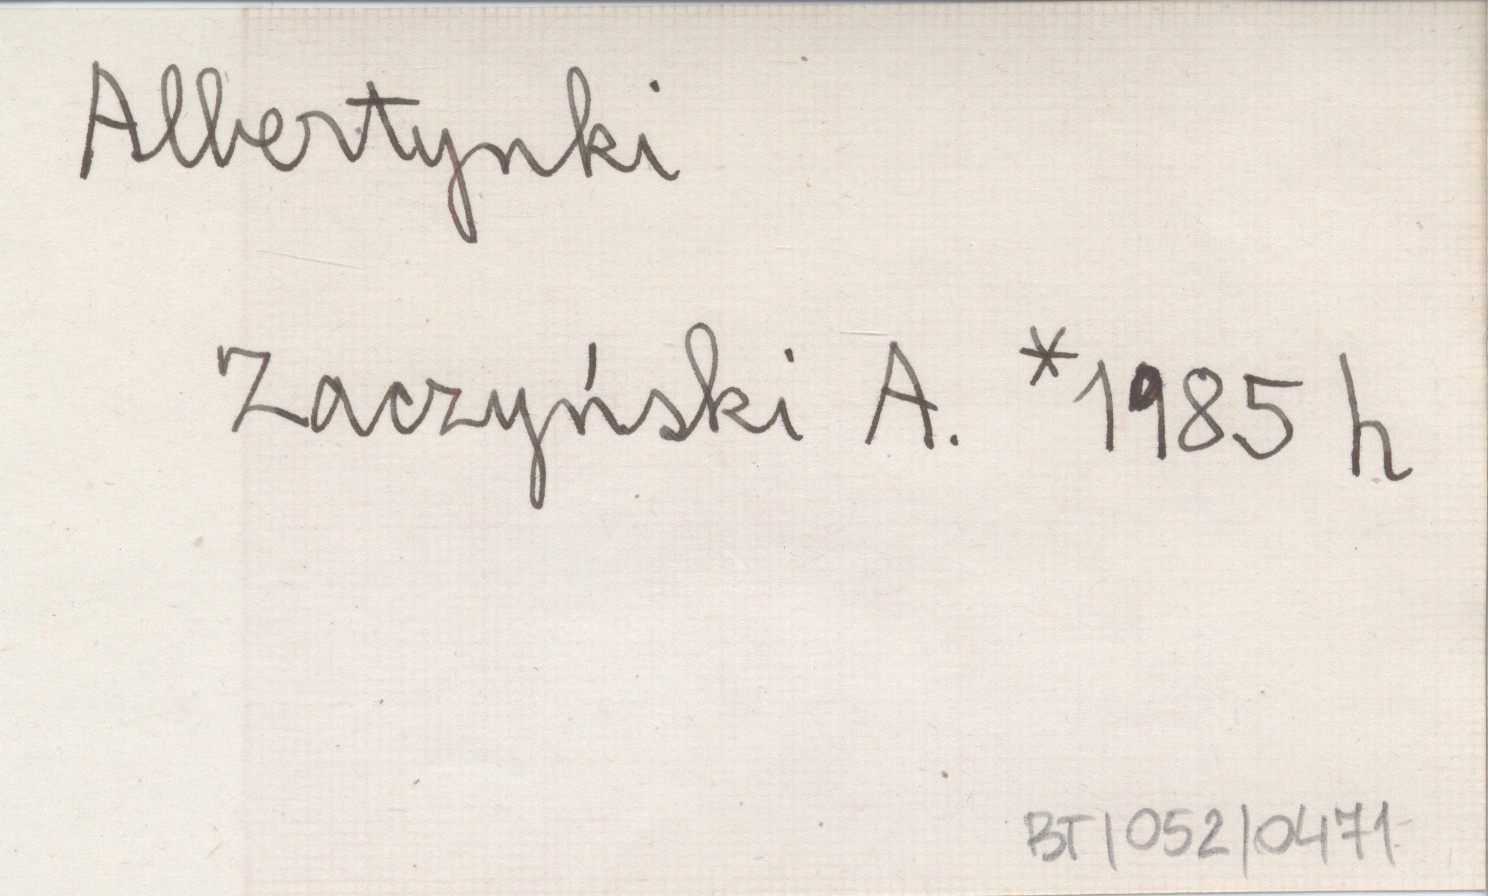 Albertynki
Zaczyński A. *1985 h
BT/052/0471